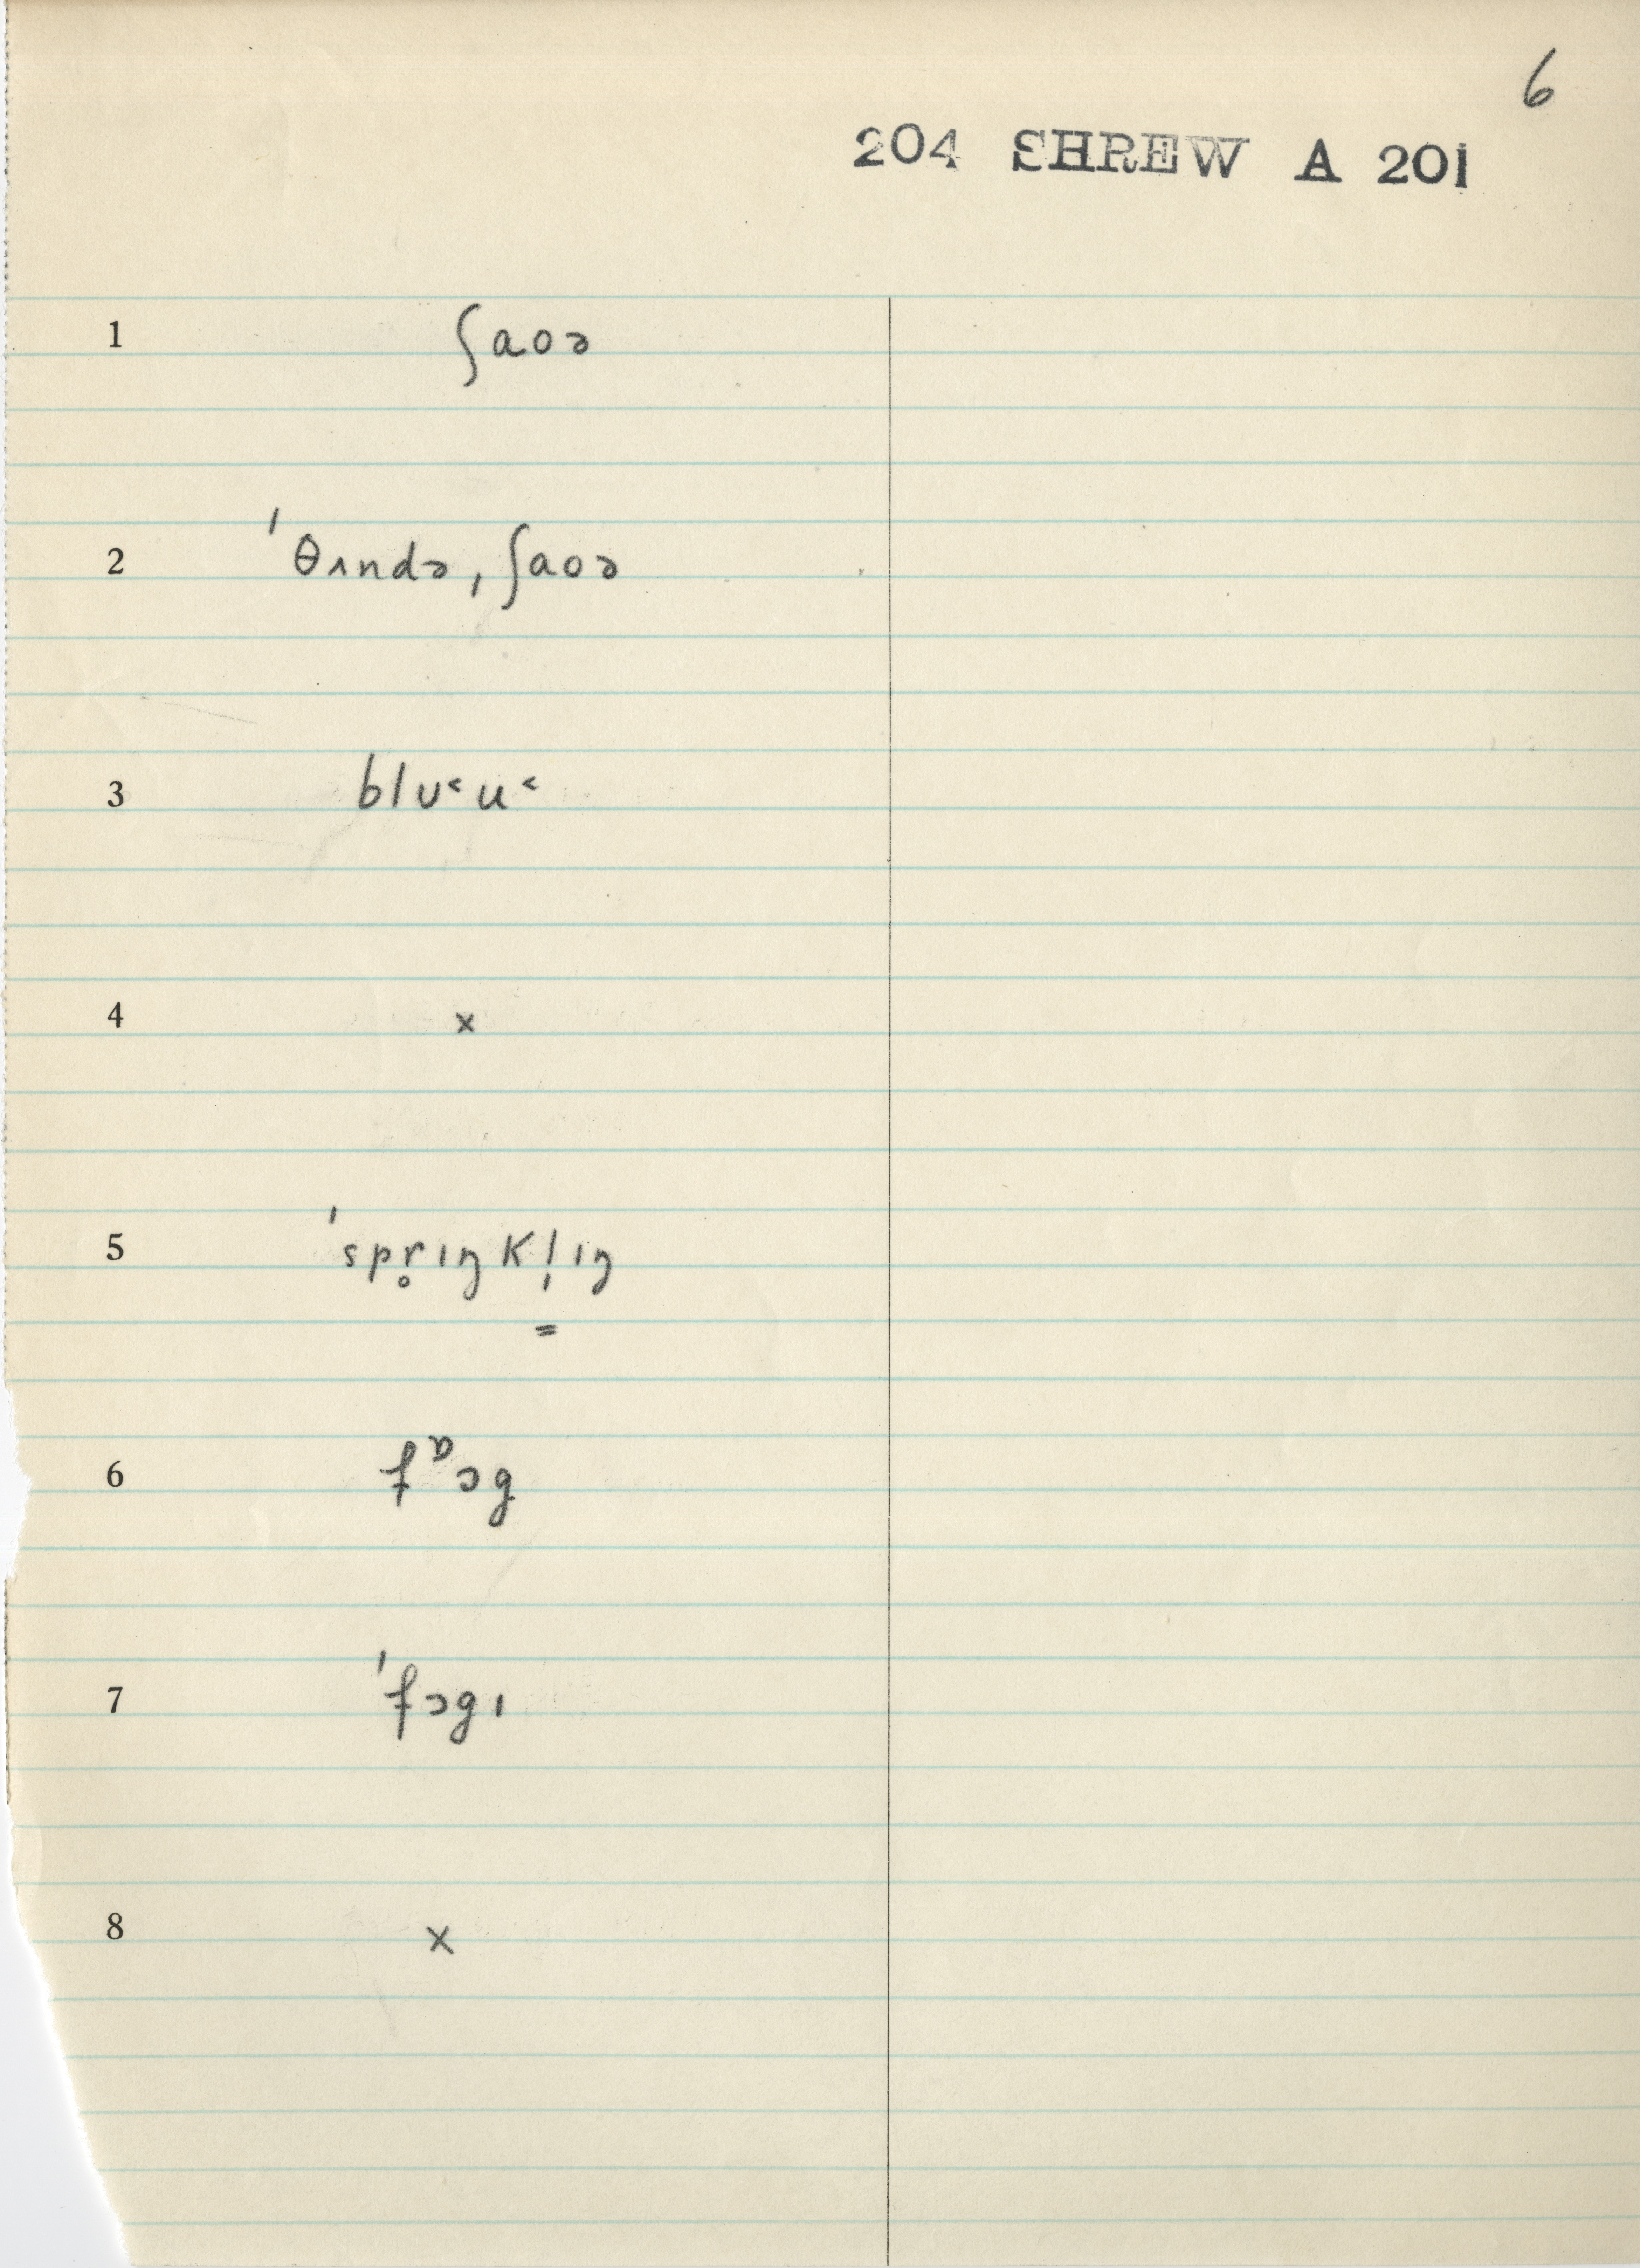 6
204 SHREW A 201
1 ʃaoə
2 ˈθʌndəˌʃaoə
3 blʊ˂u˂
4 x
5 ˈspr̥ɪŋkl̩ɪŋ
=
6 fᶛɔg
7 ˈfɔgɪ
8 x